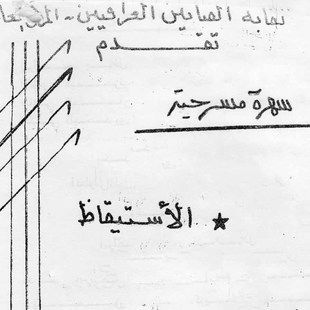 نقابة الفنانين العراقيين - المركز العام
تقدم
سهرة مسرحية
الأستيقاظ